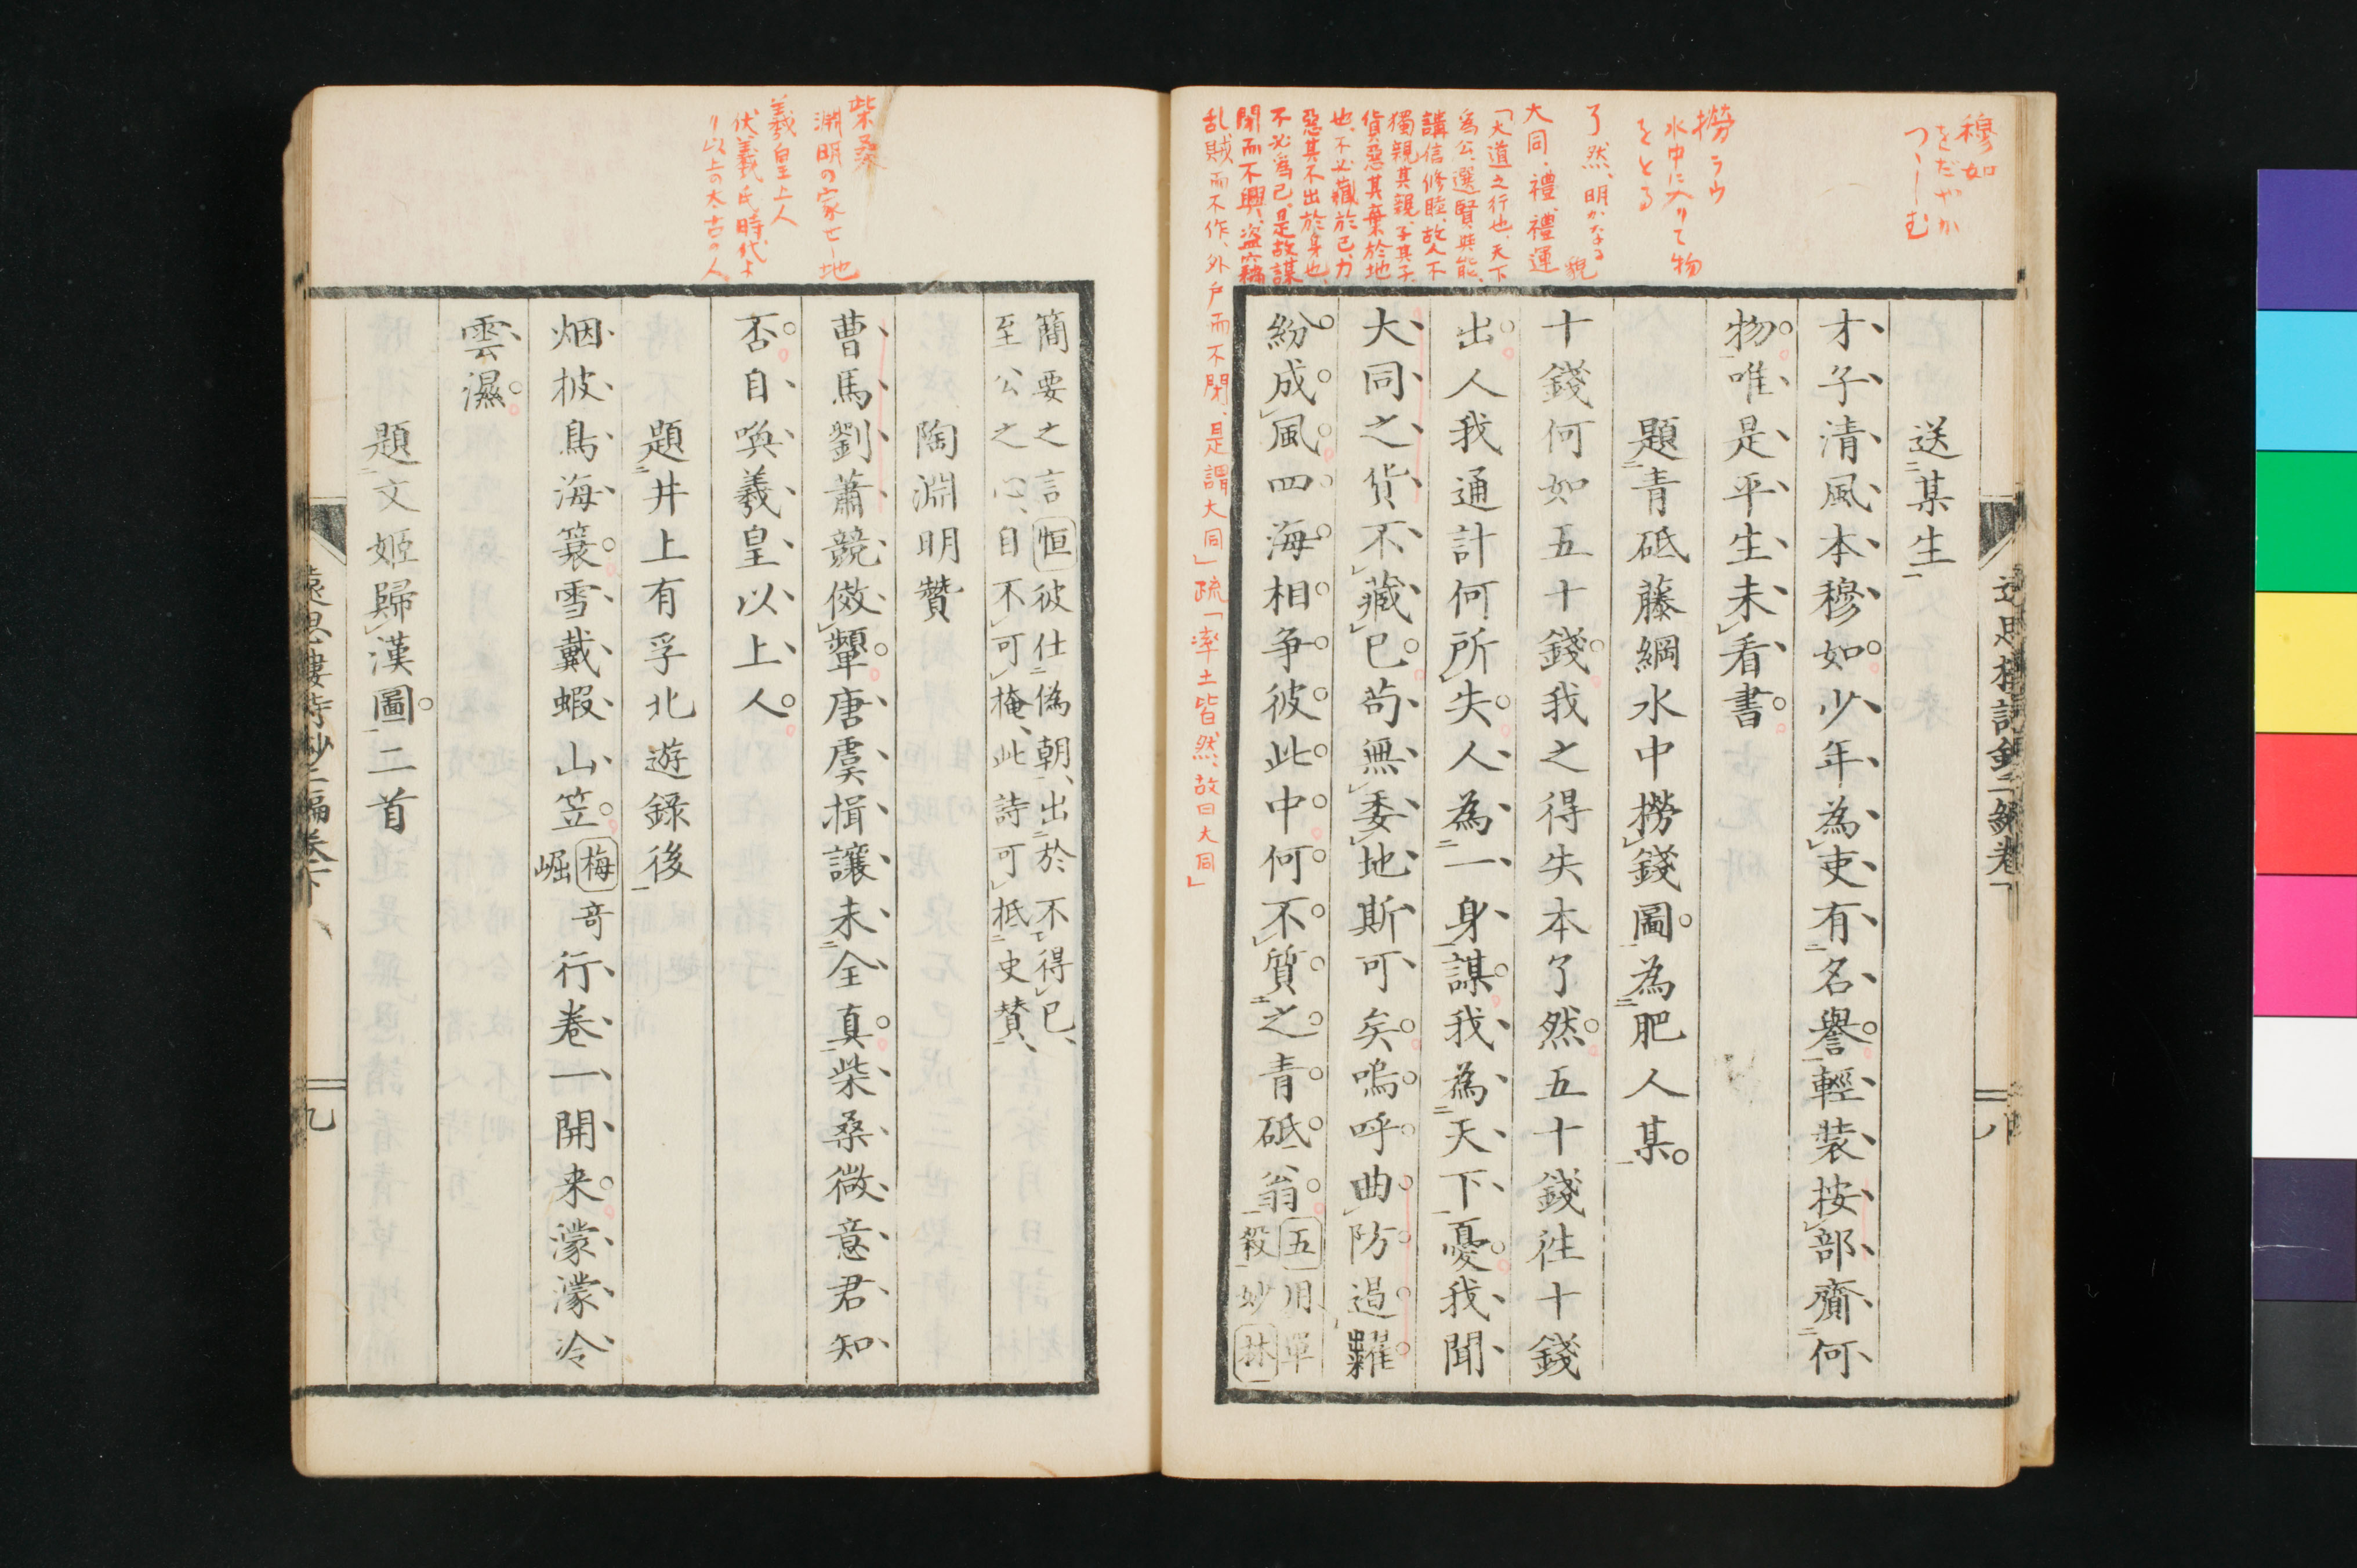 穆如
をだやか
つゝしむ
撈ラウ
水中に入りて物
をとる
了然、明かなる貌
大同、禮、禮運
「大道之行也、天下
爲公、選賢與能、
講信修睦、故人不
獨親其親、子其子、
貨惡其棄於地
也、不必藏於己、力
惡其不出於身也、
不必爲己、是故謀
閉而不興、盗竊
乱賊而不作、外戸而不閉、是謂大同」疏「率土皆然、故曰大同」
送某生
才子清風本穆如少年為吏有名譽輕装按部齎何
物唯是平生未看書
題青砥藤綱水中撈錢圖為肥人某
十錢何如五十錢我之得失本了然五十錢往十錢
出人我通計何所失人為一身謀我為天下憂我聞
大同之貨不藏已苟無委地斯可矣嗚呼曲防遏糶
紛成風四海相争彼此中何不質之青砥翁
五用單
殺妙林
遠思樓詩鈔二編卷下
八
柴桑
渊明の家せし地
羲皇上人
伏羲氏時代よ
り以上の太古の人
簡要之言恒彼仕偽朝、出於不得已、
至公之心、自不可掩、此詩可抵史賛、
陶淵明贊
曹馬劉蕭競傚顰唐虞揖讓未全真柴桑微意君知
否自喚羲皇以上人
題井上有孚北遊錄後
烟披鳥海簑雪戴蝦山笠
梅奇
崛
行卷一開来濛濛冷
雲濕
題文姬歸漢圖二首
遠思樓詩鈔二編卷下
九